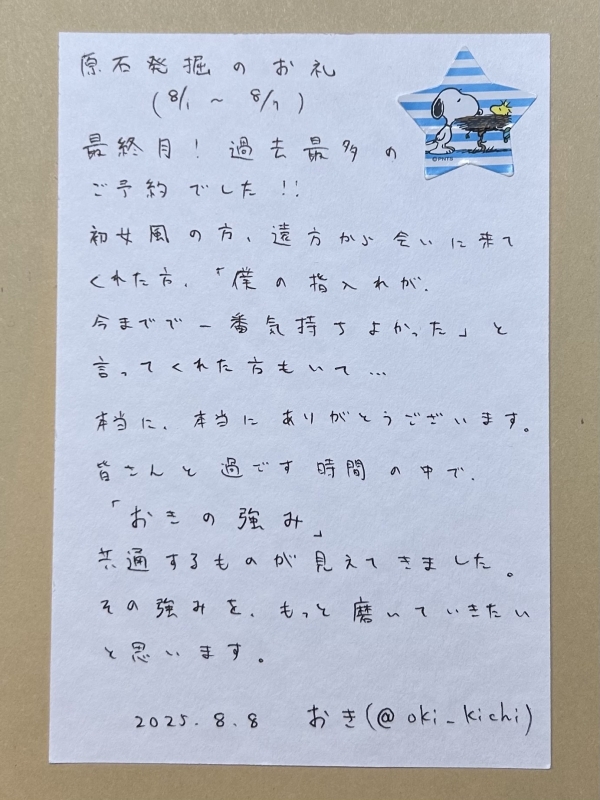 原石発掘のお礼
(8/1 ~ 8/7)
最終月! 過去最多の
ご予約でした!!
初女風の方、遠方から会いに来て
くれた方、「僕の指入れが、
今までで一番気持ちよかった」と
言ってくれた方もいて...
本当に、本当にありがとうございます。
皆さんと過ごす時間の中で、
「おきの強み」
共通するものが見えてきました。
その強みを、もっと磨いていきたい
と思います。
2025.8.8 おき(@oki_kichi)
©PNTS